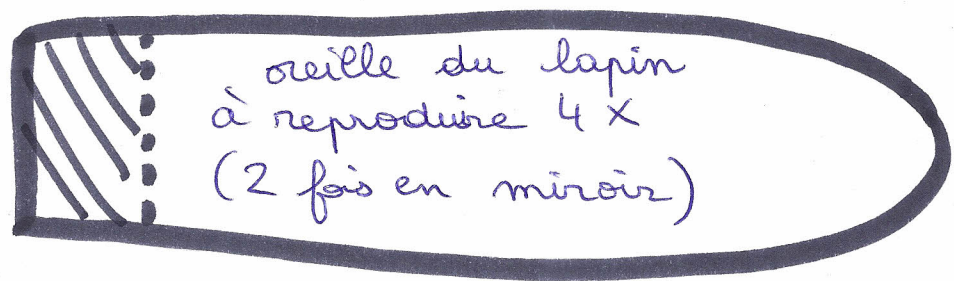 oreille du lapin
à reproduire 4 X
(2 fois en miroir)